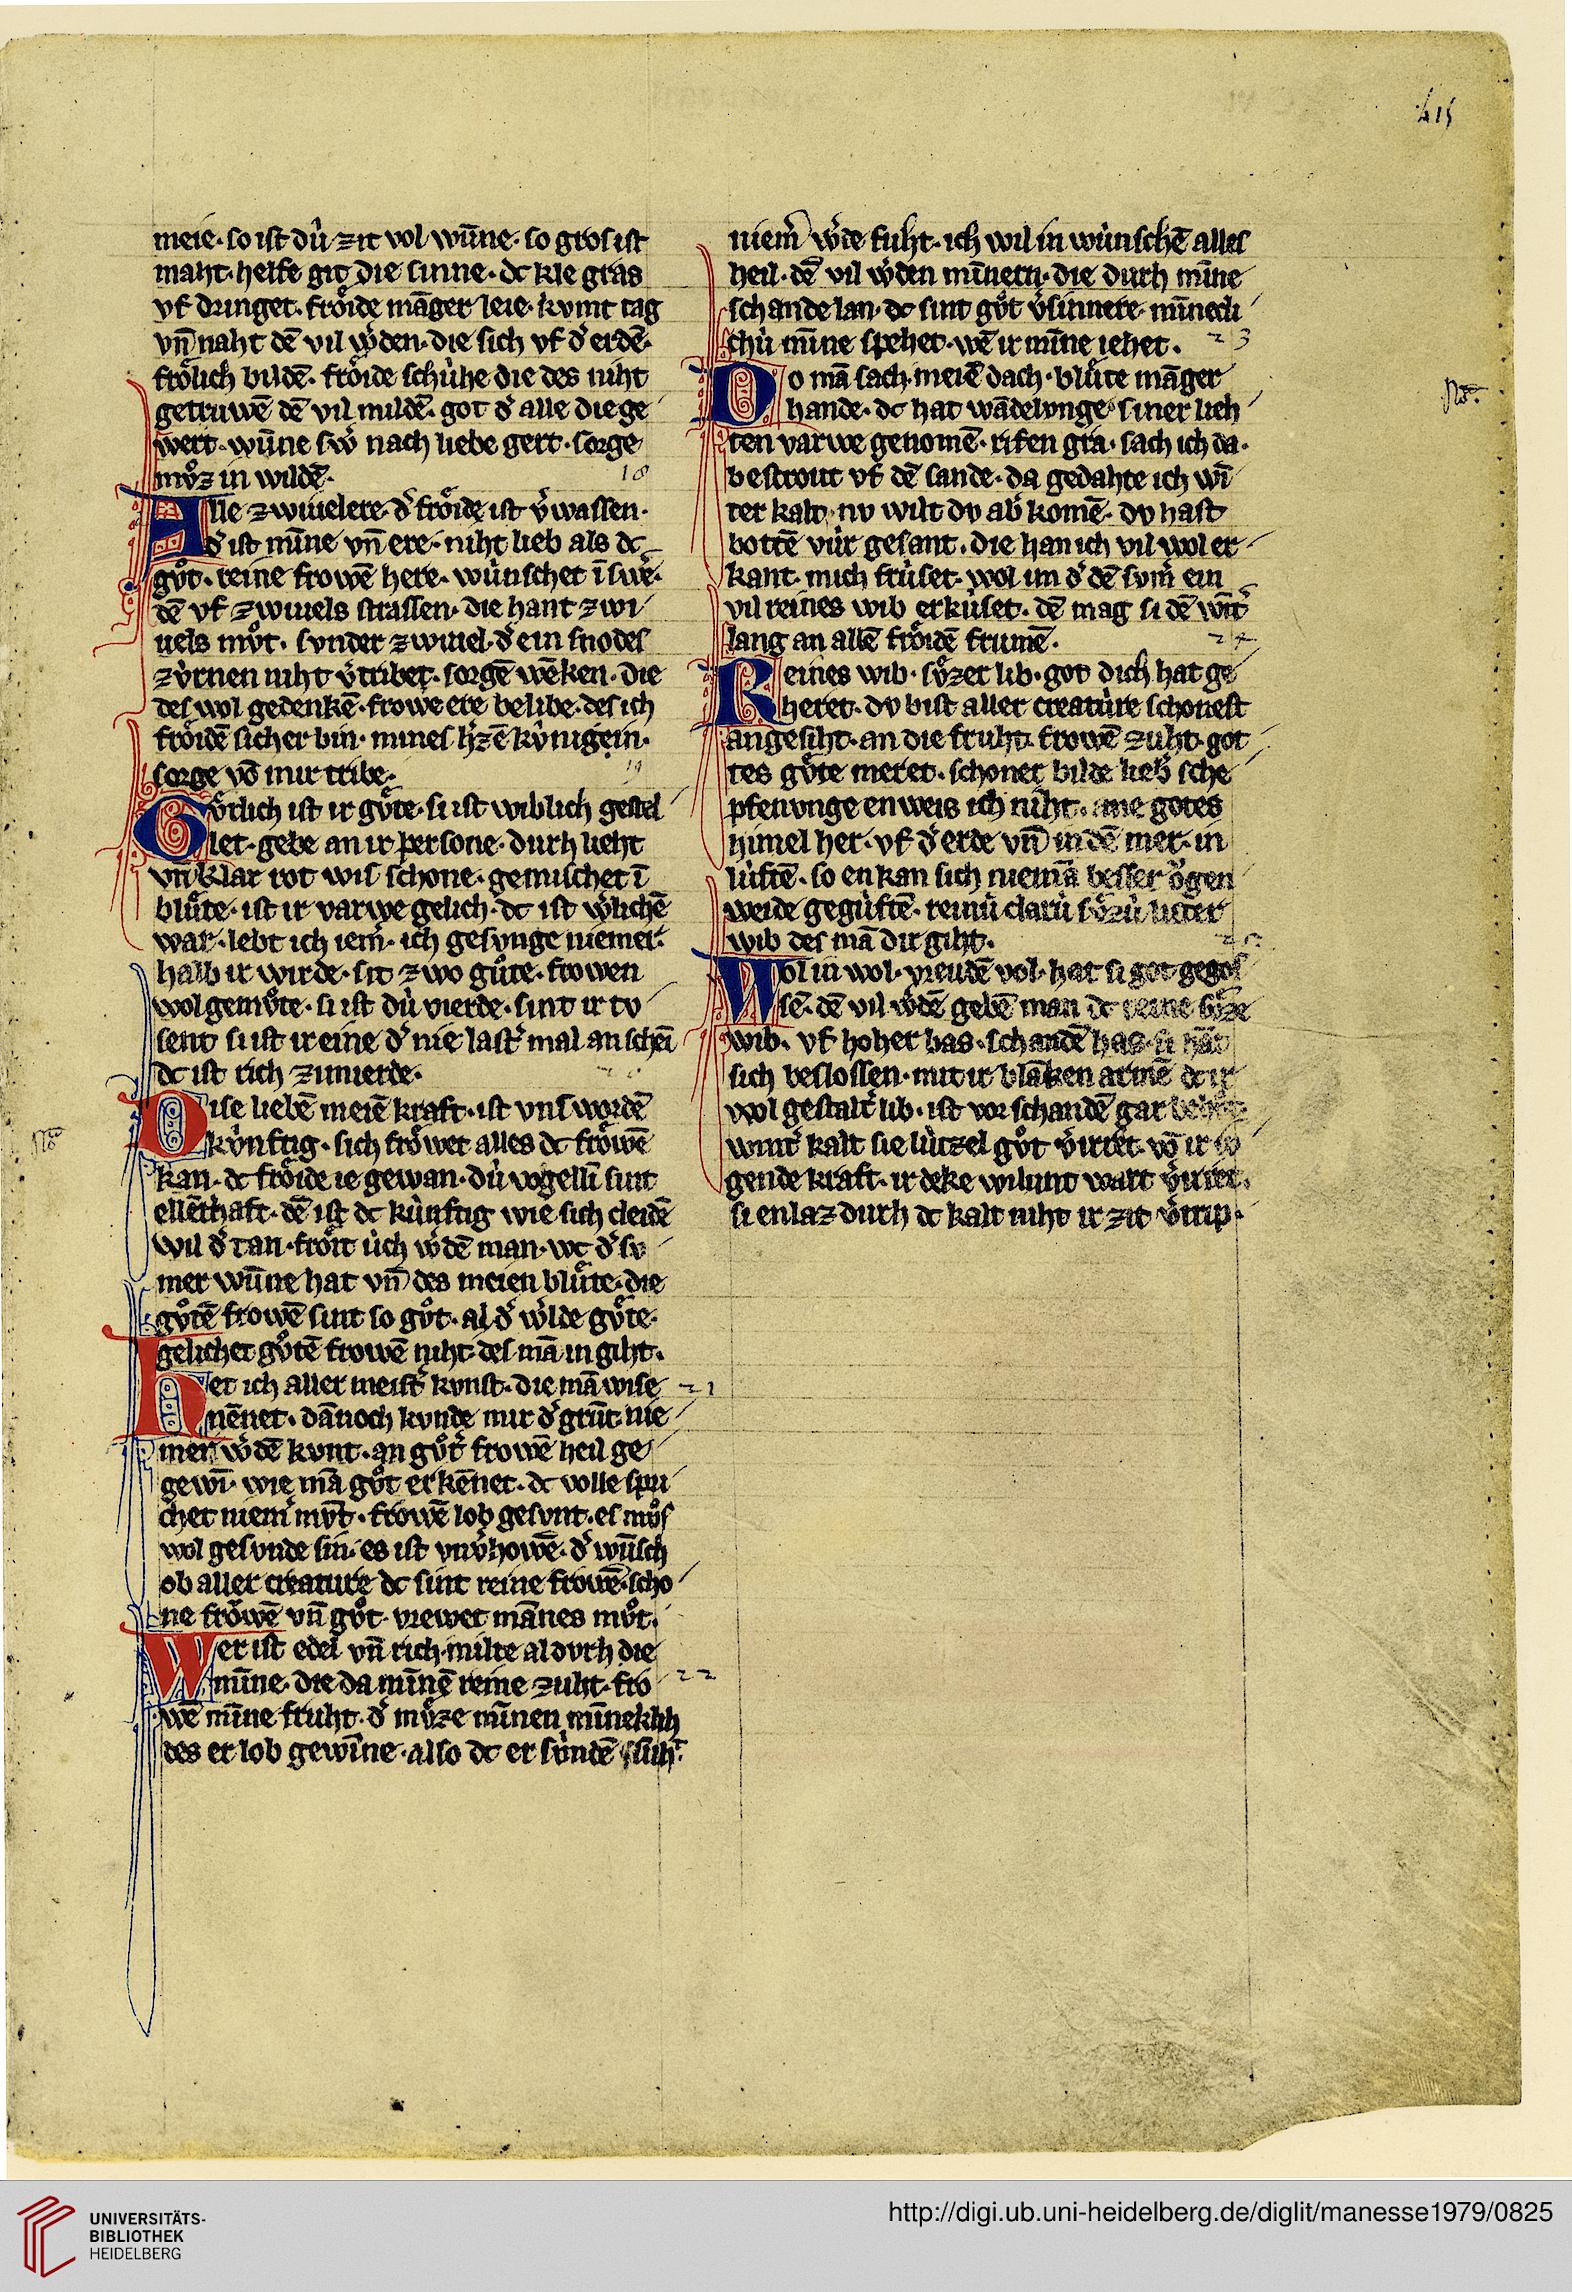 415
meie · so ist dú zit vol wūne · so gros ist
maht · helfe git die sinne · dc kle gras
vf dringet · froͤide māger leie · kvmt tag
vn̄ naht dē vil w͛den · die sich vf d͛ erdē ·
froͤlich bildē · froͤide schúhe die des niht
getruwē dē vil mildē · got d͛ alle die ge
wert · wūne sw͛ nach liebe gert · sorge
mvͦz in wildē ·
18
Alle zwiuelere · d͛ froͤide ist v͛wassen ·
d͛ ist mīne vn̄ ere · niht lieb als dc
gvͦt · reine frowē here · wúnschet ī swe͛ ·
dē vf zwiuels strassen · die hant zwi
uels mvͦt · svnder zwiuel · d͛ ein snodes
zv́rnen niht v͛tribet · sorgē wēken · die
des wol gedenkē · frowe ere belibe · des ich
froͤidē sicher bin · mines h͛zē kv́nigein ·
sorge vō mir tribe ·
19
Gvͤtlich ist ir gvͤte · si ist wiblich gestel
let · gebe an ir persone · durh lieht
vn̄ klar rot wis schone · gemischet ī
blvͤte · ist ir varwe gelich · dc ist w͛lichē
war · lebt ich iem͛ · ich gesvnge niemer ·
halb ir wirde · sit zwo gvͦte · frowen
wolgemvͦte · si ist dú vierde · sint ir tv
sent si ist ir eine d͛ nie last͛ mal an schei
dc ist rich zimierde ·
Dise liebē meiē kraft · ist vns wordē
kv́nftig · sich froͤwet alles dc froͤwē
kan · dc froͤide ie gewan · dú vogellī sint
ellēthaft · dē ist dc kúnftig wie sich cleidē
wil d͛ tan · froͤit úch w͛dē man · wc d͛ sv
mer wūne hat vn̄ des meien blvͤte · die
gvͦtē frowē sint so gvͦt · al d͛ w͛lde gvͤte ·
gelichet gvͦtē frowē niht · des mā in giht ·
Het ich aller meist͛ kvnst · die mā wise
21
nēnet · dānoch kvnde mir d͛ grūt nie
mer w͛dē kvnt · an gvͦt͛ frowē heil ge
gewī · wie mā gvͦt erkēnet · dc volle spri
chet niem͛ mvt · frowē lob gesvnt · es mvͦs
wol gesvnde sin · es ist vnv͛howē · d͛ wūsch
ob aller creature dc sint reine frowē · scho
ne frowē vn̄ gvͦt · vrewet mānes mvͦt ·
Wer ist edel vn̄ rich · milte al dvrh die
mīne · die da mīnē reine zuht · fro
22
wē mīne fruht · d͛ mvͤze mīnen mīneklih
des er lob gewīne · also dc er sv́ndē
niem͛ w͛de fuht · ich wil in wúnschē alles
heil · dē vil w͛den mīnern · die durh mīne
schande lan · dc sint gvͦt v͛sinnere · mīnecli
chú mīne spehet · wē ir mīne iehet ·
23
Do mā sach meiē dach · blvͤte māger
hande · dc hat wādelvnge siner lieh
ten varwe genomē · rifen gra · sach ich da ·
bestrout vf dē sande · da gedahte ich wī
ter kalt · nv wilt dv ab͛ komē · dv hast
bottē vúr gesant · die han ich vil wol er
kant · mich frúset · wol im d͛ dē svm͛ ein
vil reines wib erkúset · dē mag si dē wīt͛
lang an allē froͤidē frumē ·
24
Reines wib · svͤzer lib · got dich hat ge
heret · dv bist aller creatúre schonest
angesiht · an die fruht · frowē zuht · got
tes gvͤte meret · schoner bilde lieb͛ sche
pfenvnge enweis ich niht · ane gotes
himel her · vf d͛ erde vn̄ in dē mer · in
lúftē · so enkan sich niemā besser oͮgen
weide gegúftē · reinú clarú svͤzú lut͛er
wib des mā dir giht ·
25
Wol in wol · vreudē vol · hat si got gegos
sē · dē vil w͛dē gebē man dc reine svͤze
wib · vf hoher bas · schandē has · si hāt
sich beslossen · mit ir blākēn armē dc ir
wol gestalt͛ lib · ist vor schandē gar
wint͛ kalt sie lútzel gvͦt v͛irret · vō ir
gende kraft · ir deke wilunt wart v͛irret ·
si enlaz durh dc kalt niht ir zit v͛trip ·
UNIVERSITÄTS-
BIBLIOTHEK
HEIDELBERG
http://digi.ub.uni-heidelberg.de/diglit/manesse1979/0825